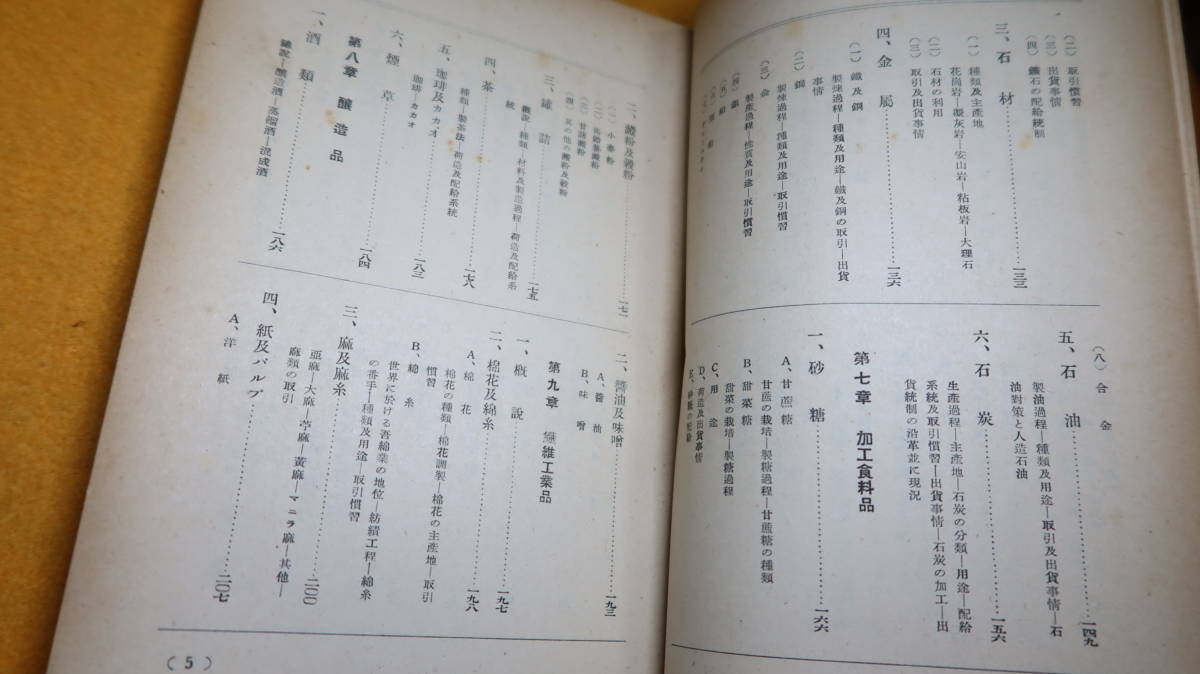 (二) 取引慣習
(三) 出貨事情
(四) 鑛石の配給統制
三、石材……一三三
(一) 種類及主產地
花崗岩—凝灰岩—安山岩—粘板岩—大理石
(二) 石材の利用
(三) 取引及出貨事情
四、金屬……一三六
(一) 鐵及鋼
製煉過程—種類及用途—鐵及鋼の取引—出貨
事情
(二) 銅
製煉過程—種類及用途—取引慣習
(三) 金
製產過程—性質及用途—取引慣習
(八) 合金
五、石油……一四九
製油過程—種類及用途—取引及出貨事情—石
油對策と人造石油
六、石炭……一五六
生產過程—主產地—石炭の分類—用途—配給
系統及取引慣習—出貨事情—石炭の加工—出
貨統制の沿革並に現況
第七章 加工食料品
一、砂糖……一六六
A、甘蔗糖
甘蔗の栽培—製糖過程—甘蔗糖の種類
B、甜菜糖
甜菜の栽培—製糖過程
C、用途
D、荷造及出貨事情
二、澱粉及穀粉……一七一
(一) 小麥粉
(二) 馬鈴薯澱粉
(三) 甘藷澱粉
(四) 其の他の澱粉及穀粉
三、罐詰……一七五
概說—種類—材料及製造過程—荷造及配給系
統
四、茶……一七八
種類—製茶法—荷造及配給系統
五、珈琲及カカオ……一八三
珈琲—カカオ
六、煙草……一八四
第八章 釀造品
一、酒類……一八六
總說—釀造酒—蒸餾酒—混成酒
二、醬油及味噌……一九三
A、醬油
B、味噌
第九章 纖維工業品
一、概說……一九七
二、棉花及綿糸……一九八
A、棉花
棉花の種類—棉花調製—棉花の主產地—取引
慣習
B、綿糸
世界に於ける吾綿業の地位—紡績工程—綿糸
の番手—種類及用途—取引慣習
三、麻及麻糸……二〇〇
亞麻—大麻—苧麻—黃麻—マニラ麻—其他—
麻類の取引
四、紙及パルプ……二〇七
A、洋紙
(5)